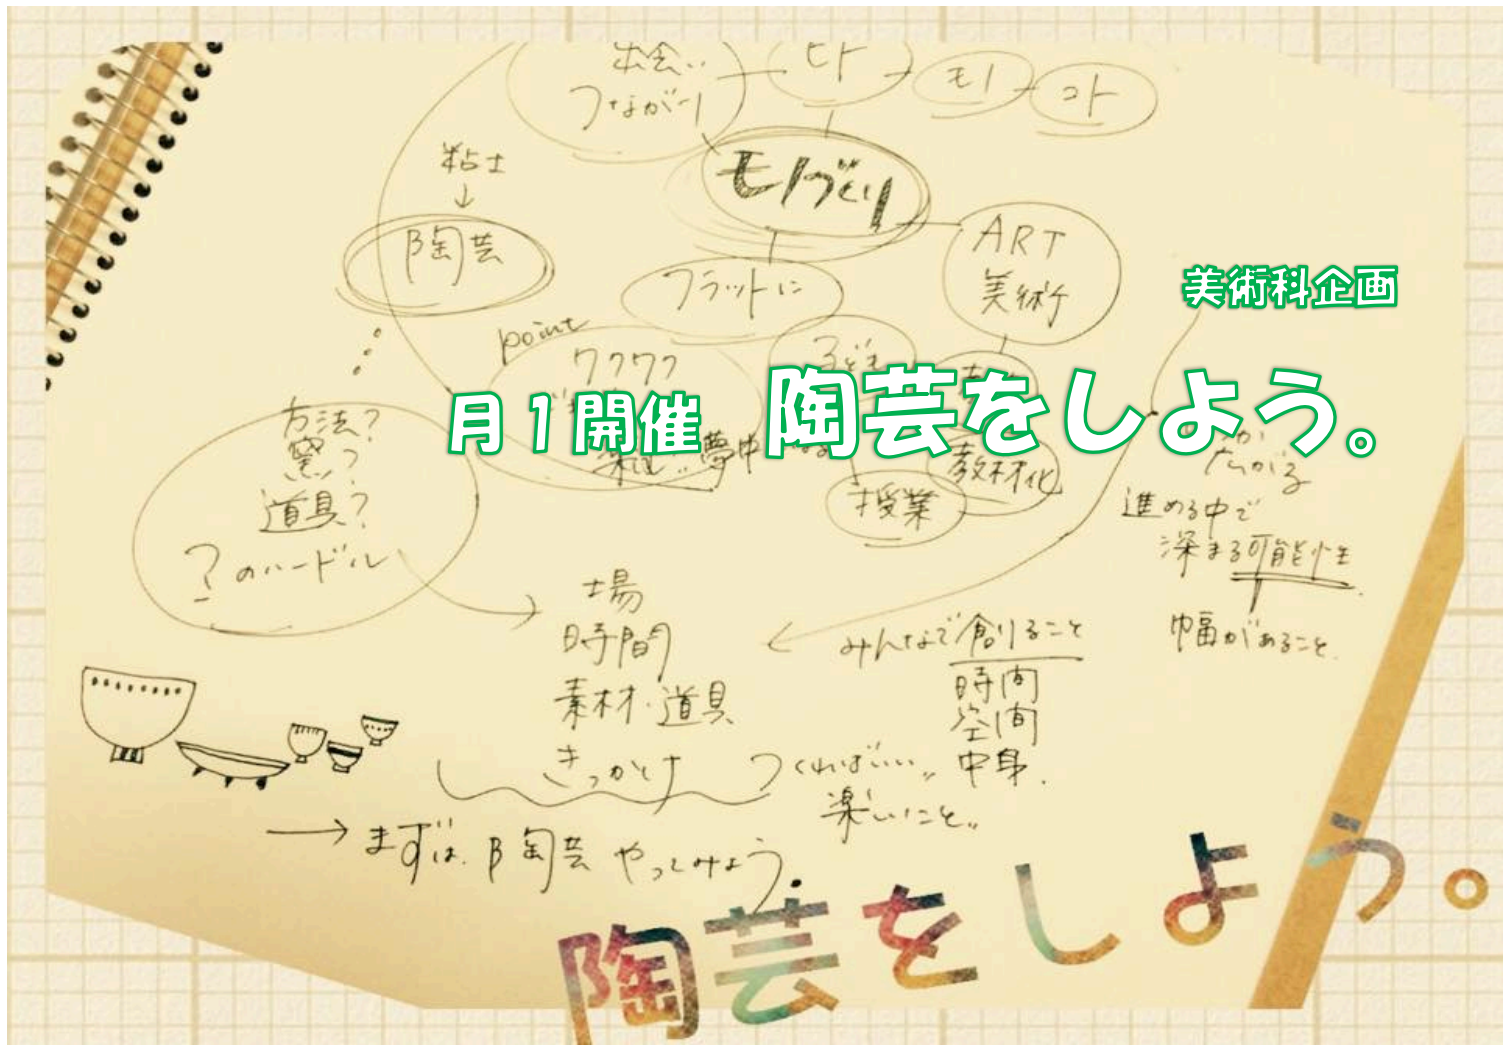 出会い
つながり
ヒト
モノ
コト
粘土
↓
陶芸
モノづくり
フラットに
ART
美術
美術科企画
point
ワクワク
子ども
月1開催 陶芸をしよう。
夢中
教材化
授業
広がる
進める中で
深まる可能性
幅があること
方法?
窯?
道具?
?のハードル
場
時間
素材・道具
きっかけ
みんなで創ること
時間
空間
中身.
つくればいい
楽しいこと
→まずは.陶芸やってみよう.
陶芸をしよう。